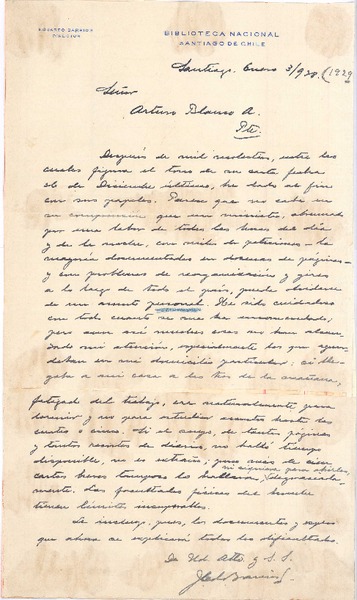 BIBLIOTECA NACIONAL
SANTIAGO DE CHILE
Santiago, Enero 3/928 (1929
Señor
Arturo Blanco A.
Pte.
Después de mil molestias, entre las
cuales figura el tono de su carta fecha
26 de Diciembre último, he dado al fin
con sus papeles. Parece que no cabe en
su comprensión que un ministro, abrumado
por una labor de todas las horas del día
y de la noche, con miles de peticiones - la
mayoría documentadas en docenas de páginas -
y con problemas de reorganización y giras
a lo largo de todo el país, puede olvidarse
de un asunto personal. He sido cuidadoso
con todo cuanto se me ha encomendado;
pero aun así muchas cosas no han alcanzado
mi atención, especialmente los que
en mi domicilio particular; si
a mi casa a las dos de la mañana,
fatigado del trabajo, era naturalmente para
dormir y no para estudiar asuntos hasta las
cuatro o cinco. Si el suyo, de tantas páginas
y tantos recortes de diario, no halló tiempo
disponible, no es extraño; pues más de cien
cartas tampoco lo hallaron, ni siquiera para abrirlas, desgraciadamente.
Las facultades físicas del hombre
tienen límites insuperables.
Le incluyo, pues, los documentos y espero
que ahora se explicará todas las dificultades.
De Ud. Atto. y S. S.